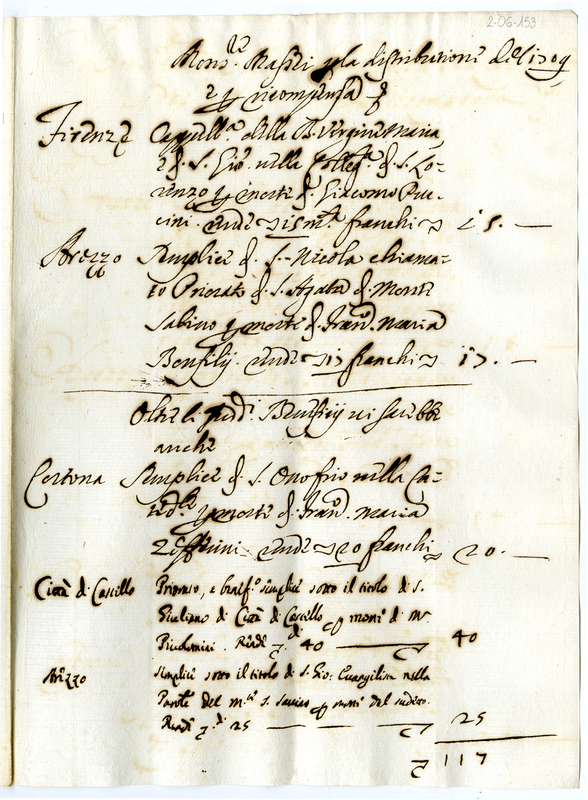 2-06-153
Mons.re Massei p la distributione del 1709
e p ricompensa
Firenze Cappell.a della B. Vergine Maria
e di S. Gio. nella Colleg.ta di S. Lo-
renzo p morte di Giacomo Puc-
cini. rende 15 m.ta franchi 15. —
Arezzo Semplice di S. Nicola chiama-
to Priorato di S. Agata di Monte
Sabino p morte di Fran.o Maria
Bonfilij. rende 17 franchi 17. —
Oltre li pred.i Benefizij vi sarebbe
anche
Cortona Semplice di S. Onofrio nella Ca-
ted.le p morte di Fran.o Maria
Zeffirini. rende 20 franchi 20. —
Città di Castello Priorato, e benef.o semplice sotto il titolo di S.
Giuliano di Città di Castello p morte di M.
Piccolomini. Rende di 40 — 40
Arezzo Semplice sotto il titolo di S. Gio: Evangelista nella
del m. S. Savino p morte del sudetto.
Rende di 25 — — — 25
117